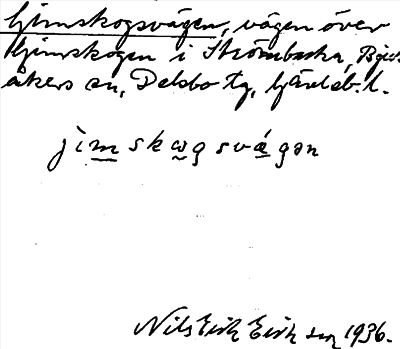 Gimskogsvägen, vägen över
Gimskogen i Strömbacka, Bjur-
åkers sn, Delsbo tg, Gävleb. l.
jimskωgsvágən
Nils Erik Eriksson 1936.